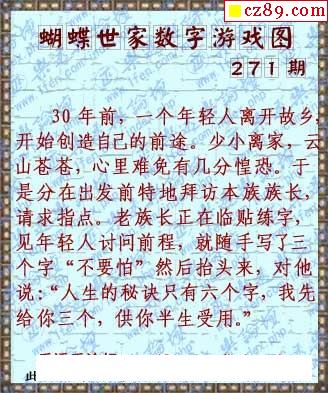 cz89.com
蝴蝶世家数字游戏图
271 期
30 年前，一个年轻人离开故乡，
开始创造自己的前途。少小离家，云
山苍苍，心里难免有几分惶恐。于
是分在出发前特地拜访本族族长，
请求指点。老族长正在临贴练字，
见年轻人讨问前程，就随手写了三
个字“不要怕”然后抬头来，对他
说：“人生的秘诀只有六个字，我先
给你三个，供你半生受用。”